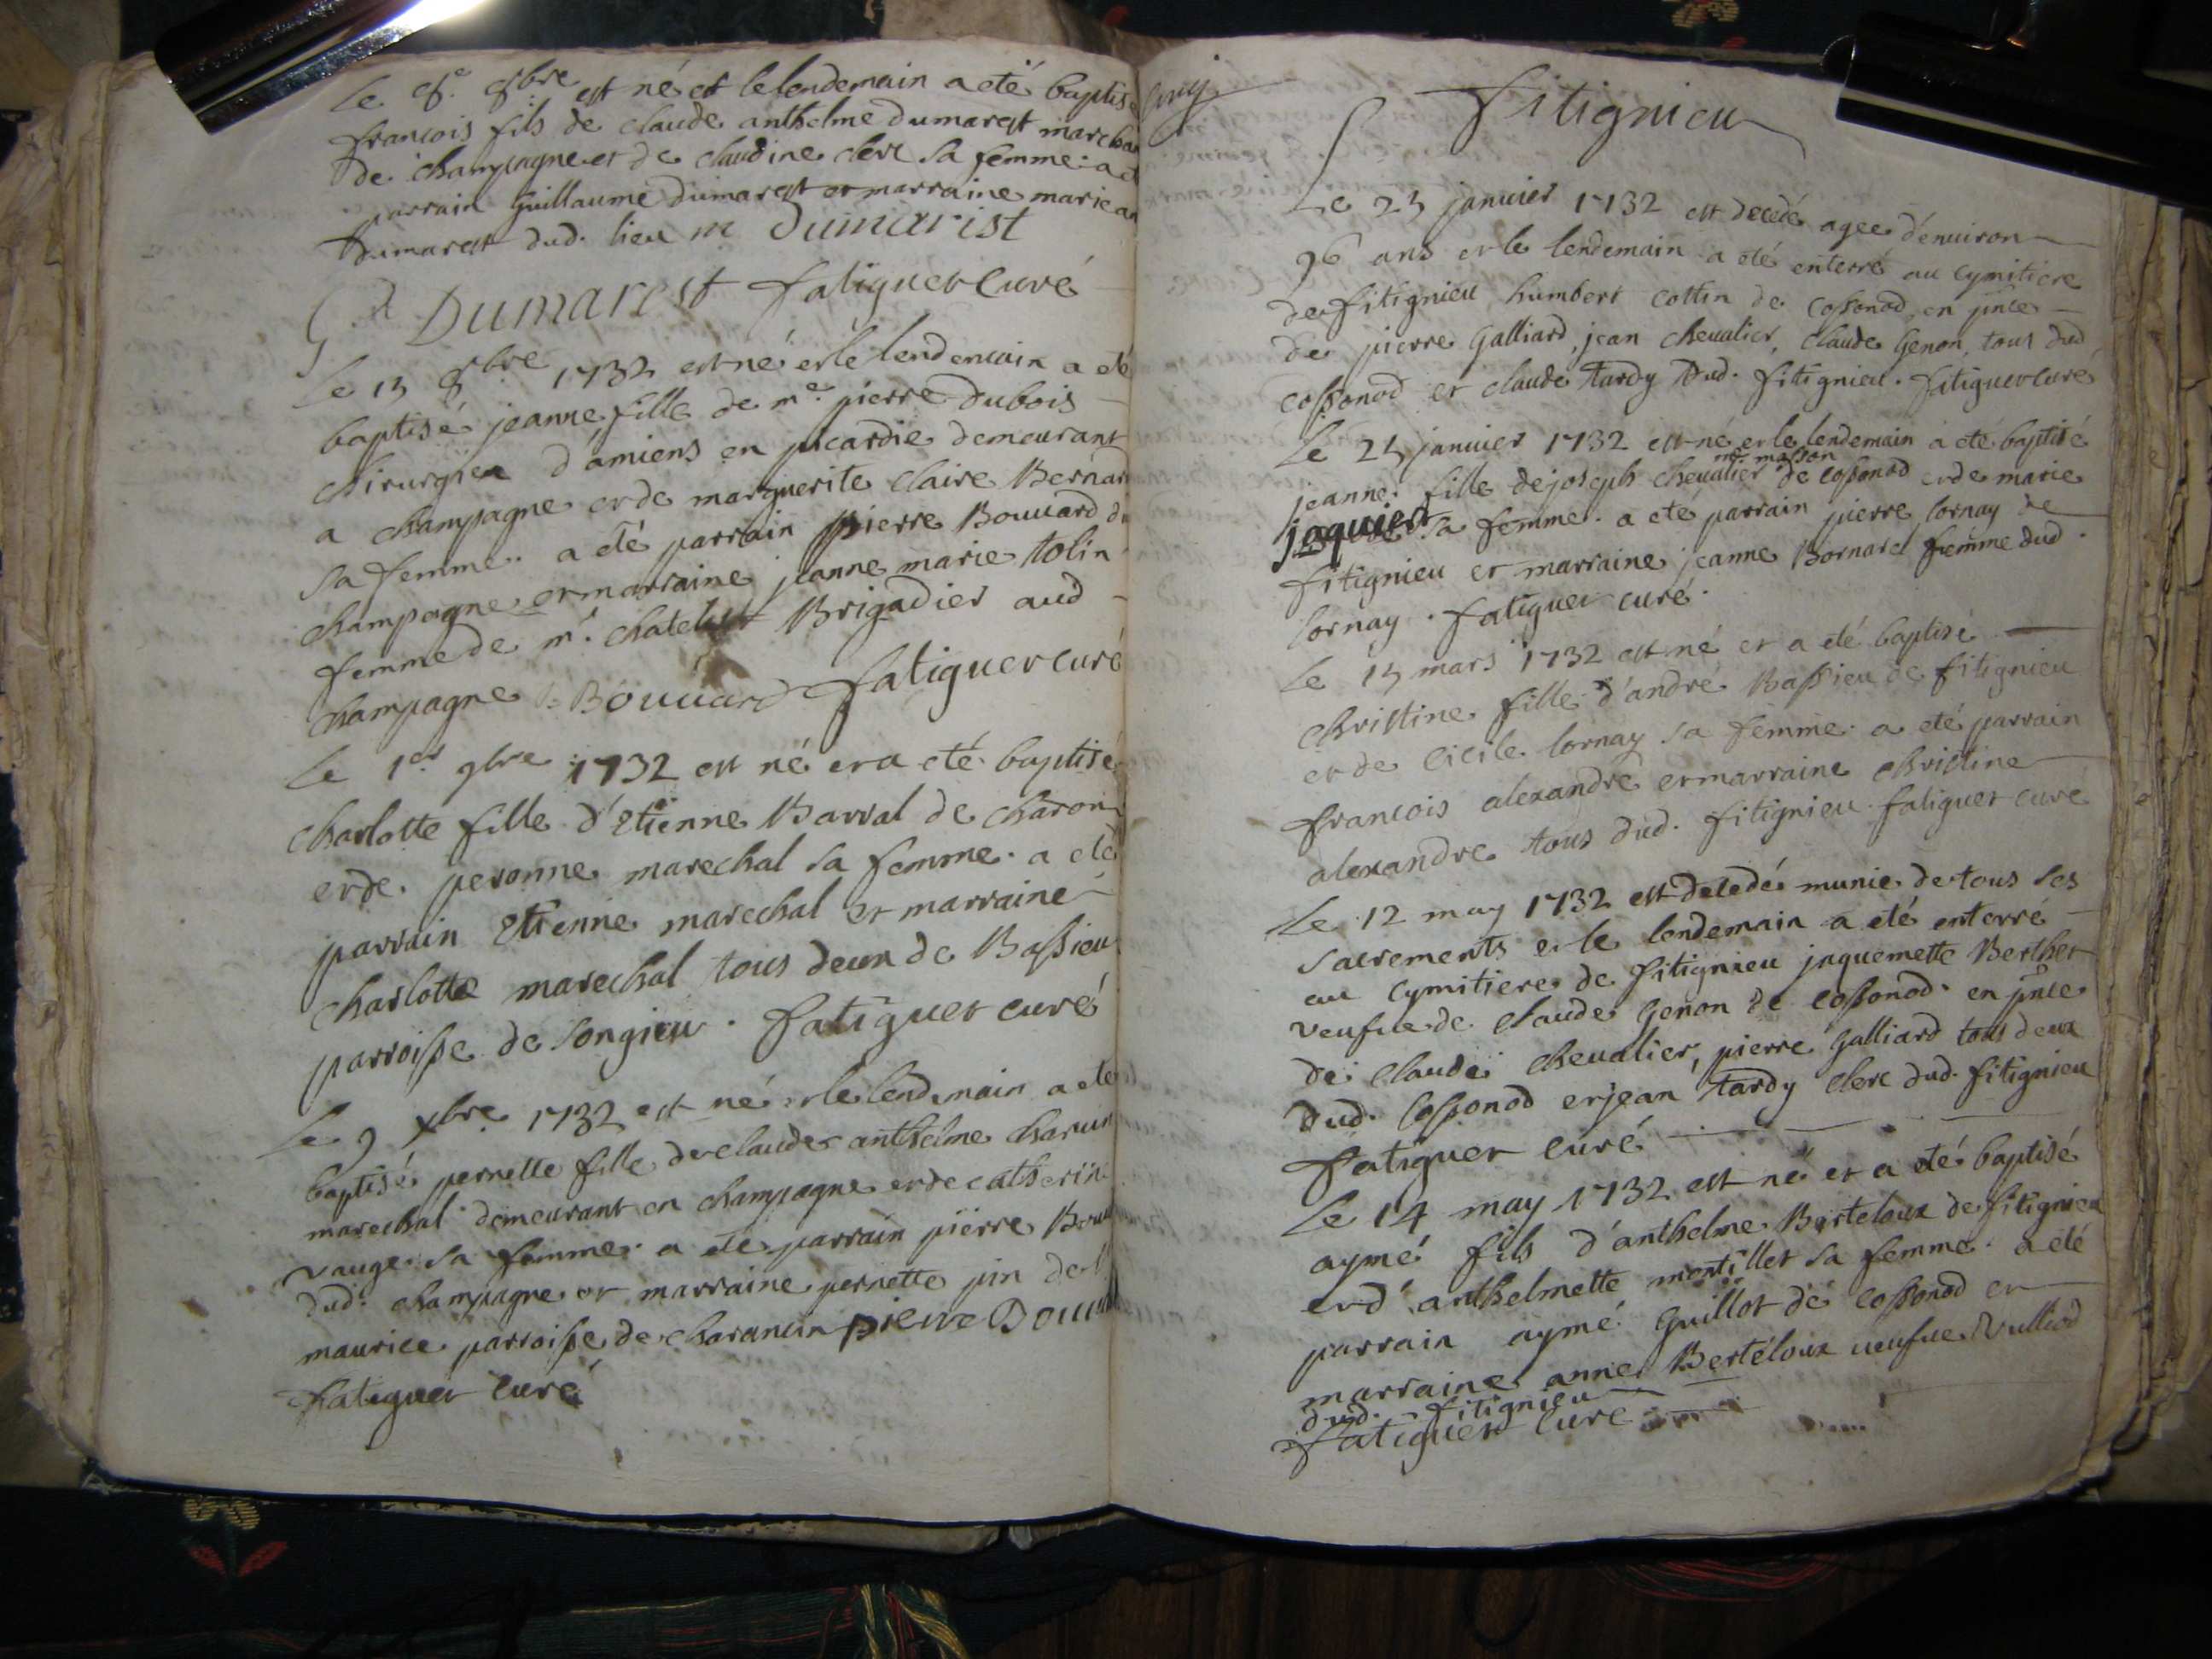 Le 8e. 8bre est né et le lendemain a eté baptisé
francois fils de claude anthelme Dumarest marchan
de champagne et de claudine clerc sa femme. a
parrain Guillaume Dumarest et marraine marie an
Dumarest dud. lieu m Dumarist
Gd Dumarest fatiguet curé
Le 13 8bre 1732 est né et le lendemain a eté
baptisé jeanne fille de me. pierre Dubois
chirurgien d'amiens en picardie demeurant
a champagne et de marguerite claire Bernar
sa femme. a eté parrain pierre Bouuard du
champagne et marraine jeanne marie tolin
femme de mr. Brigadier aud
champagne Bouuard fatiguet curé
Le 1er 9bre 1732 est né et a eté baptisé
charlotte fille d'Etienne Barral de charon
et de peronne marechal sa femme. a eté
parrain Etienne marechal et marraine
charlotte marechal tous deux de Bassieu
parroisse de songieu. fatiguet curé
Le 9 xbre 1732 est né et le lendemain a eté
baptisé pernette fille de claude anthelme
marechal demeurant en champagne et de catherine
vauge sa femme. a eté parrain pierre
dud. champagne et marraine pernette pin de
maurice parroisse de pierre
fatiguet curé
fitignieu
Le 23 januier 1732 est decedé agee d'enuiron
96 ans et le lendemain a eté enterré au cymitiere
de fitignieu humbert cottin de cossonod, en pnce
de pierre Galliard, jean cheualier, claude Genon, tous dud.
cossonod et claude tardy dud. fitignieu. fatiguet curé
Le 24 januier 1732 est né et le lendemain a eté baptisé
jeanne fille de joseph cheualier me masson de cossonod et de marie
jaquier sa femme. a eté parrain pierre lornay de
fitignieu et marraine jeanne Bornard femme dud.
lornay. fatiguet curé.
Le 13 mars 1732 est né et a eté baptisé
christine fille d'andré Bassieu de fitignieu
et de cicile lornay sa femme. a eté parrain
francois alexandre et marraine christine
alexandre tous dud. fitignieu. fatiguet curé
Le 12 may 1732 est decedé munie de tous ses
sacrements et le lendemain a eté enterré
au cymitiere de fitignieu jaquemette Berthet
veufue de claude Genon de cossonod. en pnce
de claude cheualier, pierre Galliard tous deux
dud. cossonod et jean tardy clerc dud. fitignieu
fatiguet curé
Le 14 may 1732 est né et a eté baptisé
aymé fils d'anthelme Berteloux de fitignieu
et d'anthelmette montillet sa femme. a eté
parrain aymé Guillot de cossonod et
marraine anne Berteloux ueufue Vulliod
dud. fitignieu
fatiguet curé